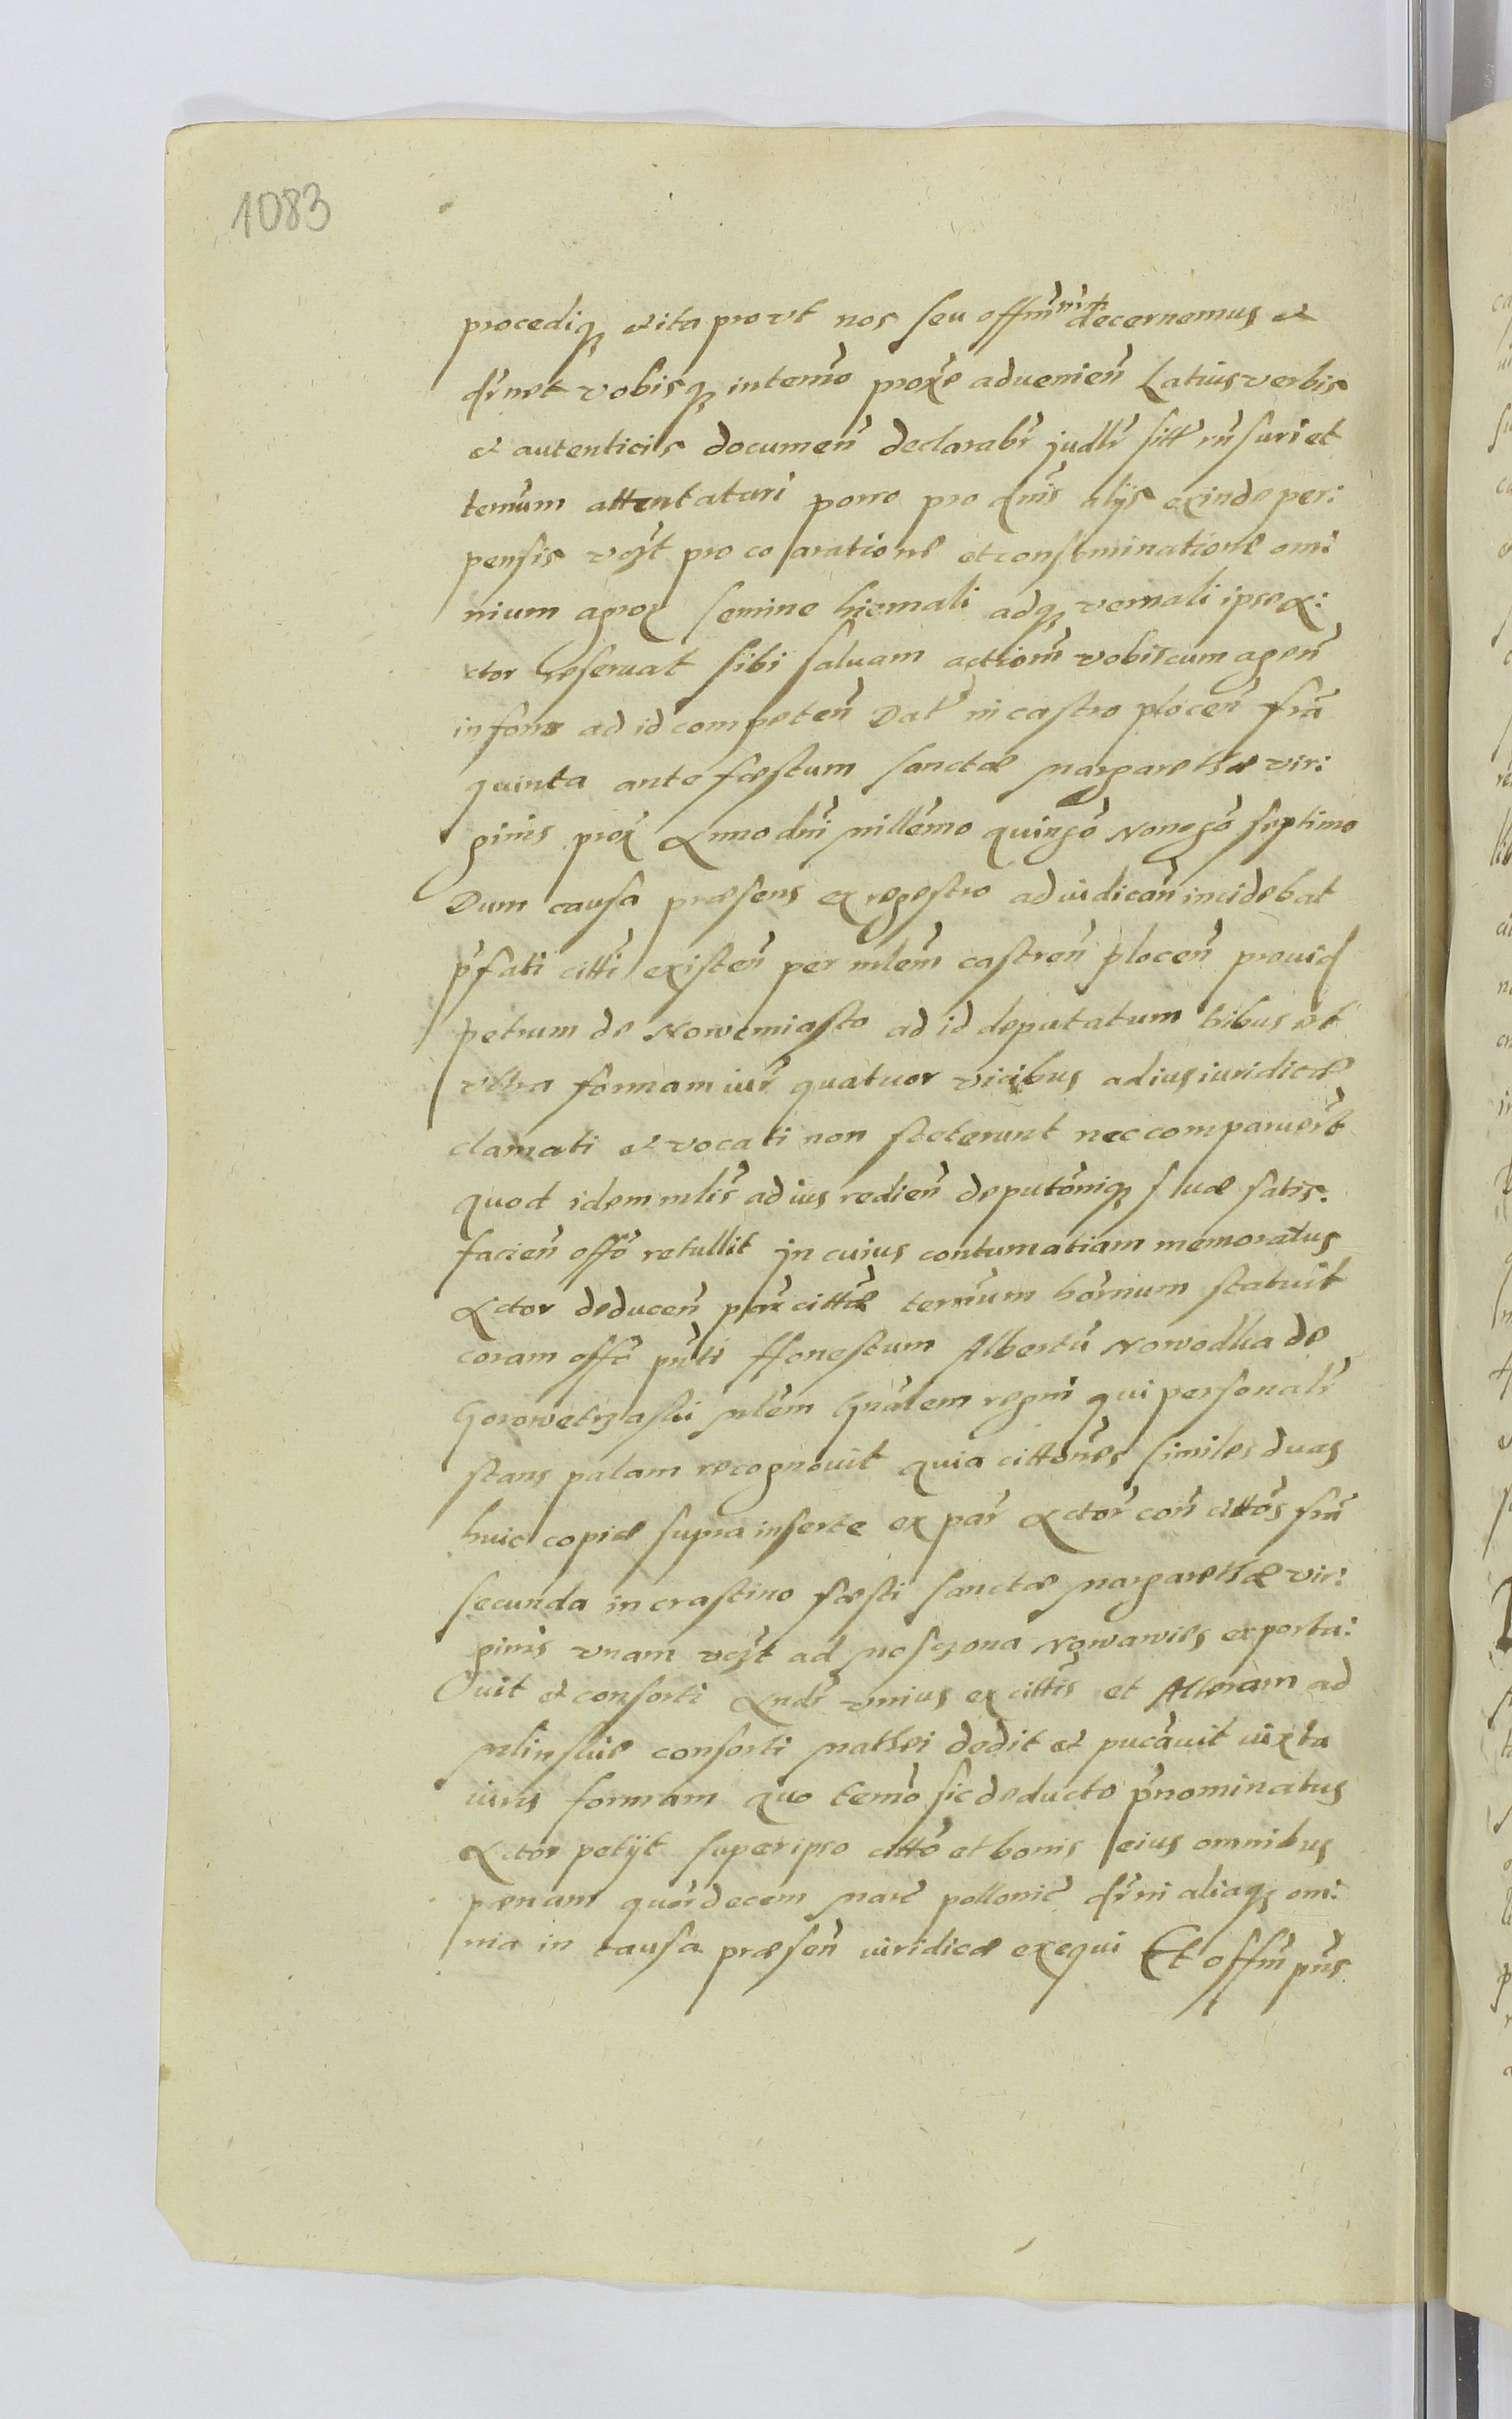 1083
procediq₃ et ita pro vt nos seu offm̃ nr̃t decernemus et
dr̃net vobisq₃ in termo proxe aduenien̄ Latius verbis
et autenticis documen̄ declarabr̃ judlr̃ sitt rn̄suri et
termum attentaturi porro pro dm̄s alijs exinde per:
pensis vc₃t pro co aratione et conseminatione om̄:
nium agroꝝ semine hiemali adq₃ vernali ipse A:
ctor reseruat sibi saluam actiom̄ vobiscum agen̄
in foro ad id competen̄ Dat̃ in castro plocen̄ fr̃ia
quinta ante festum sanctæ margarethæ vir:
ginis prox̃ Anno dni millemo quingo Nonago septimo
Dum causa præsens ex regestro ad iudican̄ incidebat
p̃fati citti existen̄ per mlem̃ castren̄ plocen̄ prouid
petrum de Nowemiasto ad id deputatum tribus et
vltra formam iur̃ quatuor vicibus ad ius iuridicæ
clamati et vocati non steterunt nec comparuer̃t
quod idem mlr̃is ad ius redien̄ deputoniq₃ suæ satis:
facien̄ offo retullit jn cuius contumatiam memoratus
Actor deducen̄ par̃ cittæ termum hornum statuit
coram offo pn̄ti Honestum Albertũ Nowodka de
mlem̃ Gnãlem regni qui personalr̃
stans palam recognouit quia cittones similes duas
huic copiæ supra inserte ex par̃ Actor̃ con̄ cittos fr̃ia
secunda in crastino festi sanctæ margarethæ vir:
ginis vnam vc₃t ad Nowawies exporta:
uit et consorti Andr̃ vnius ex cittis et Alteram ad
consorti mathei dedit et pucauit iuxta
iuris formam quo termo sic deducto p̃nominatus
Actor petijt super ipso citto et bonis eius omnibus
pænam quor̃decem marc̃ pollonic̃ dr̃ni aliaq₃ om̄:
nia in causa præsen̄ iuridicæ exequi Et offm̃ pn̄s